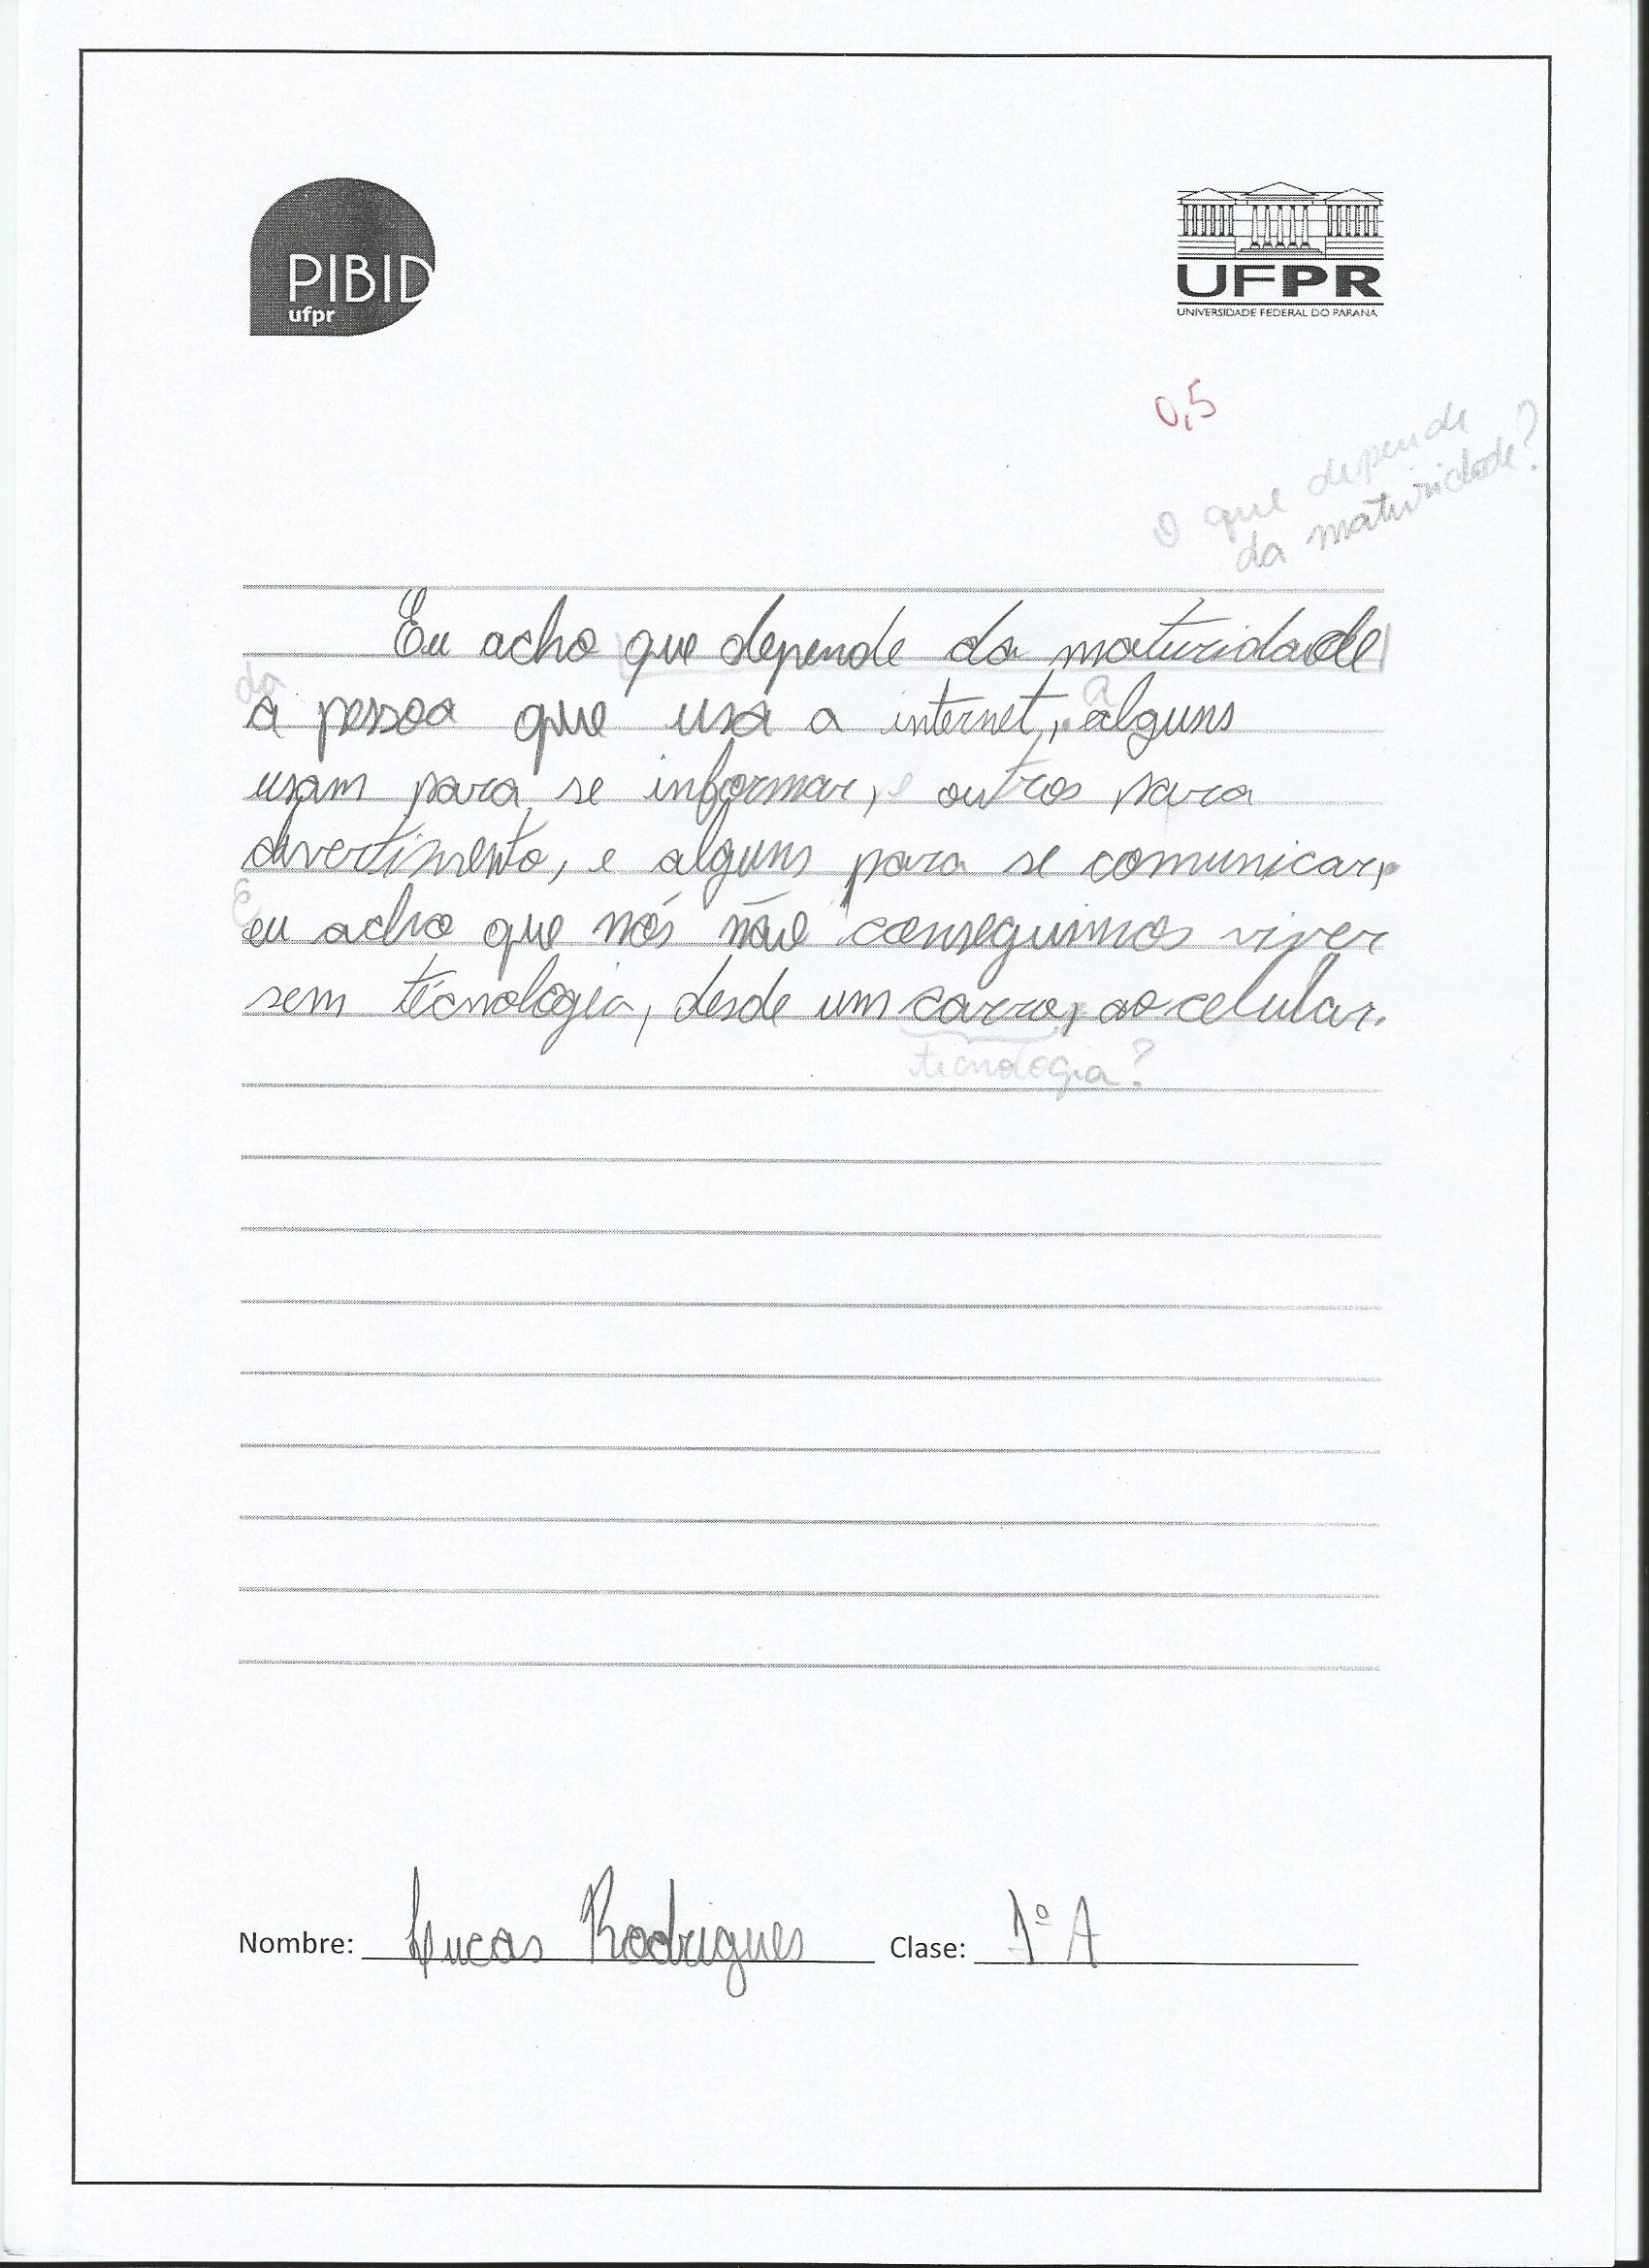 PIBID
ufpr
UFPR
UNIVERSIDADE FEDERAL DO PARANÁ
0,5
O que depende
da maturidade?
Eu acho que depende da maturidade
da
a pessoa que usa a internet, alguns
A
usam para se informar, e outros para
divertimento, e alguns para se comunicar,
E
eu acho que nós não conseguimos viver
sem técnologia, desde um carro, ao celular.
tecnologia?
Nombre: Lucas Rodrigues Clase: 1º A